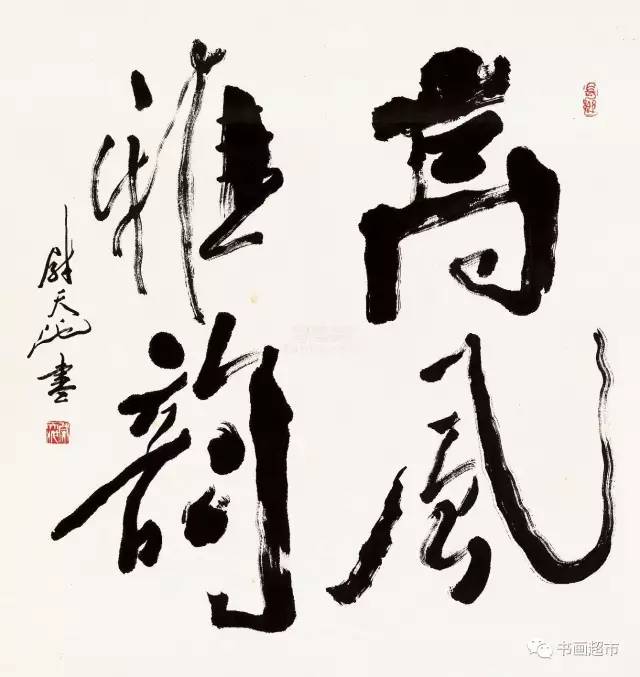 高風
雅韵
尉天池書
书画超市